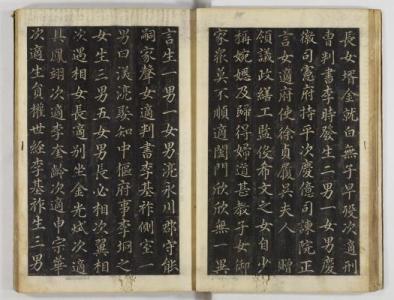 長女壻金就白無子早歿次適刑
曹判書李時發生二男一女男慶
徽司憲府持平次慶億司諫院正
言女適府使徐貞履吳夫人 贈
領議政繕工監俊希文之女自少
稱婉嫕及歸得婦道甚教子女御
家衆莫不順適閨門欣欣無一異
言生一男一女男滉永川郡守能
嗣家聲女適判書李基祚側室
男曰渼 娶知中樞府事李坰之
女生三男五女男長必相次翼相
次遇相女長適別坐金光斌次適
具鳳翊次適李奎齡次適申宗華
次適生員權世經李基祚生三男